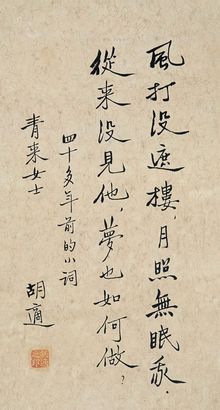 風打没遮樓，月照無眠我．
從来没見他，夢也如何做？
四十多年前的小詞
青来女士
胡適